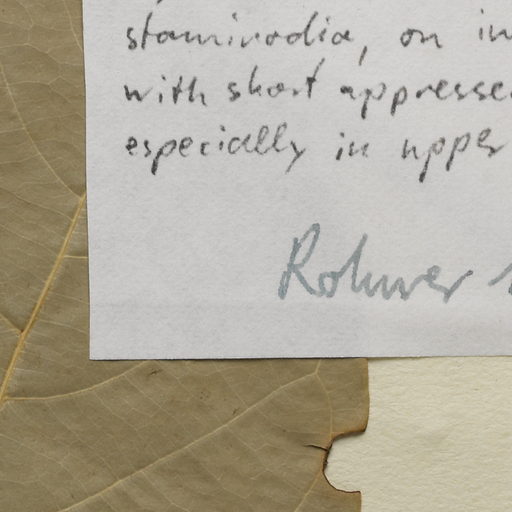 staminodia, on in
with short appressed
especially in upper
Rohwer